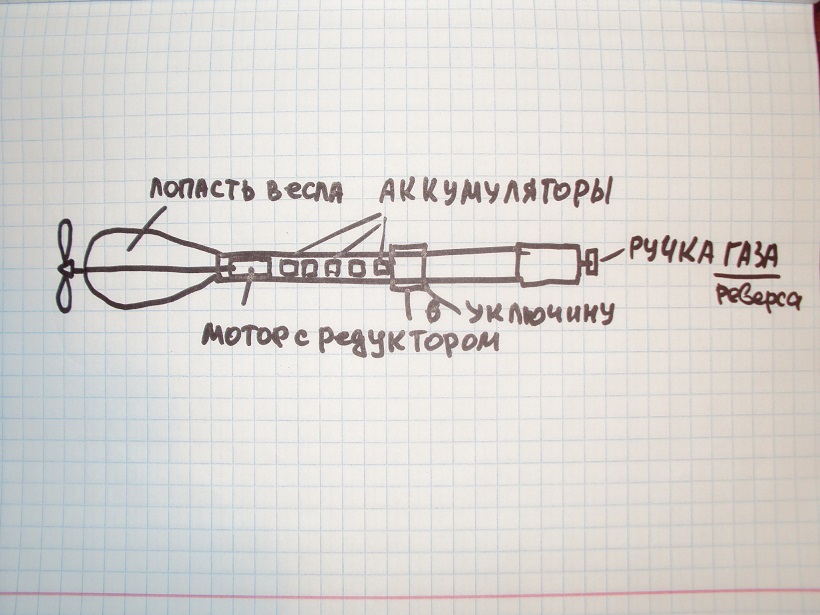 лопасть весла
Аккумуляторы
ручка газа
реверса
в уключину
мотор с редуктором